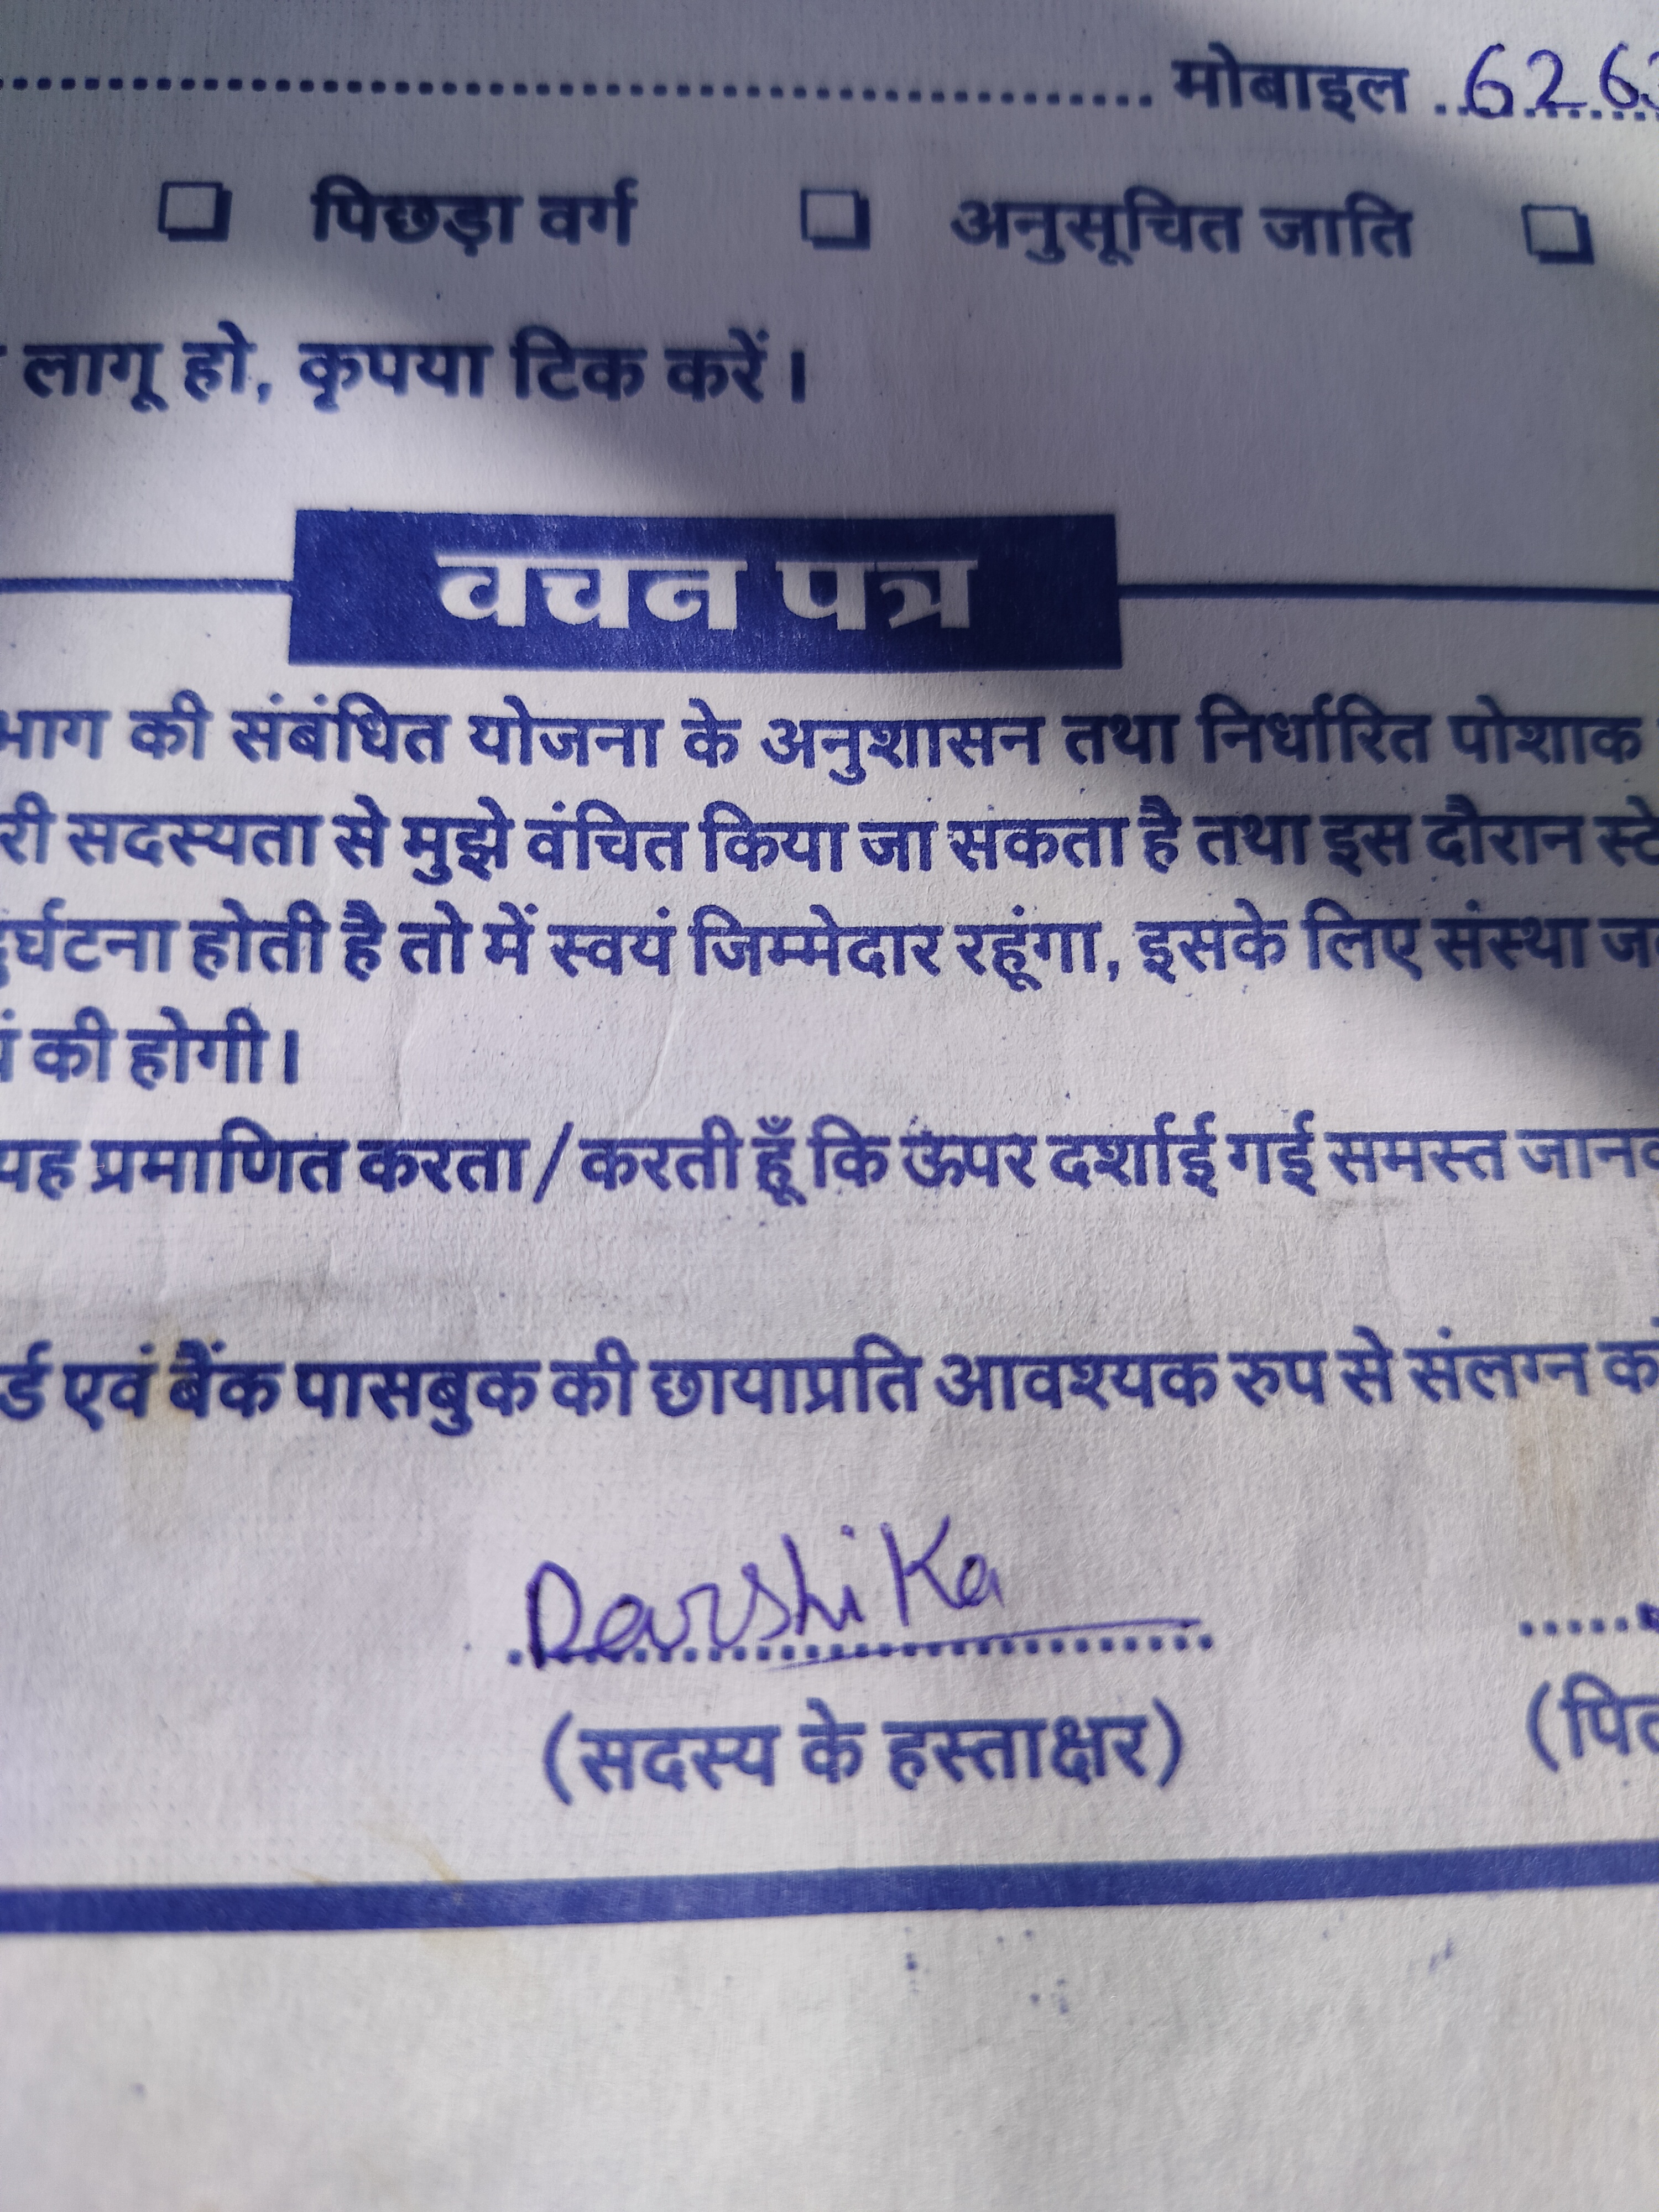 मोबाइल 626
पिछड़ा वर्ग अनुसूचित जाति
लागू हो, कृपया टिक करें।
वचन पत्र
की संबंधित योजना के अनुशासन तथा निर्धारित पोशाक
सदस्यता से मुझे वंचित किया जा सकता है तथा इस दौरान
होती है तो में स्वयं जिम्मेदार रहूंगा, इसके लिए संस्था
की होगी।
यह प्रमाणित करता / करती हूँ कि ऊपर दर्शाई गई समस्त
एवं बैंक पासबुक की छायाप्रति आवश्यक रुप से संलग्न
Darshika
(सदस्य के हस्ताक्षर)